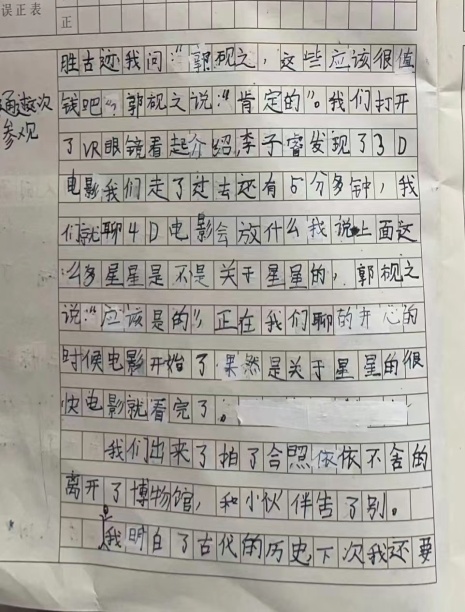 误正表
正
胜古迹我问:“郭枧之,这些应该很值
钱吧”?郭枧之说:“肯定的”。我们打开
通过这次
参观
了VR眼镜看起介绍,李子睿发现了3D
电影我们走了过去还有5分多钟,我
们就聊4D电影会放什么我说上面这
么多星星是不是关于星星的,郭枧之
说:“应该是的”,正在我们聊的开心的
时候电影开始了果然是关于星星的很
快电影就看完了。
我们出来了拍了合照依依不舍的
离开了博物馆,和小伙伴告了别。
我明白了古代的历史,下次我还要